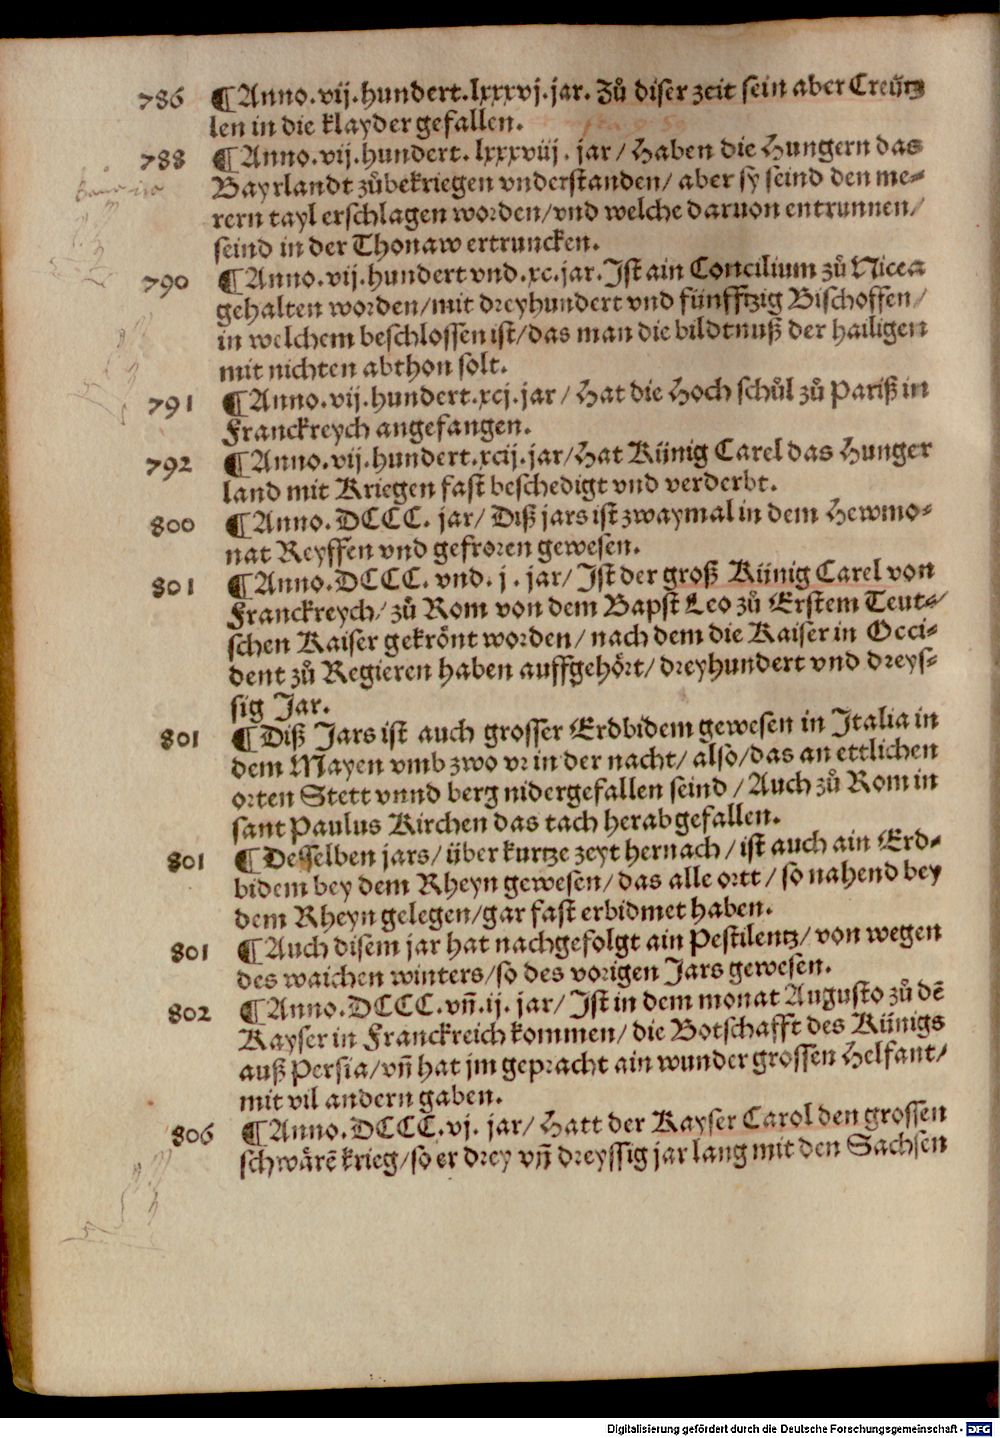 786 ¶Anno.vij.hundert.lxxxvj.jar. Zů diser zeit sein aber Creütz
len in die klayder gefallen.
788 ¶Anno.vij.hundert.lxxxviij. jar/ Haben die Hungern das
Bayrlandt zůbekriegen vnderstanden/ aber sy seind den me⸗
rern tayl erschlagen worden/vnd welche daruon entrunnen/
seind in der Thonaw ertruncken.
790 ¶Anno.vij.hundert vnd.xc.jar.Ist ain Concilium zů Nicea
gehalten worden/mit dreyhundert vnd fünfftzig Bischoffen/
in welchem beschlossen ist/das man die bildtnuß der hailigen
mit nichten abthon solt.
791 ¶Anno.vij.hundert.xcj.jar/ Hat die Hoch schůl zů Pariß in
Franckreych angefangen.
792 ¶Anno.vij.hundert.xcij.jar/Hat Künig Carel das Hunger
land mit Kriegen fast beschedigt vnd verderbt.
800 ¶Anno.DCCC. jar/ Diß jars ist zwaymal in dem Hewmo⸗
nat Reyffen vnd gefroren gewesen.
801 ¶Anno.DCCC. vnd. j. jar/ Ist der groß Künig Carel von
Franckreych/ zů Rom von dem Bapst Leo zů Erstem Teut⸗/
schen Kaiser gekrönt worden/ nach dem die Kaiser in Occi⸗
dent zů Regieren haben auffgehört/ dreyhundert vnd dreys⸗
sig Jar.
801 ¶Diß Jars ist auch grosser Erdbidem gewesen in Italia in
dem Mayen vmb zwo vr in der nacht/ also/das an ettlichen
orten Stett vnnd berg nidergefallen seind /Auch zů Rom in
sant Paulus Kirchen das tach herab gefallen.
801 ¶Desselben jars/ über kurtze zeyt hernach/ ist auch ain Erd⸗
bidem bey dem Rheyn gewesen/ das alle ortt/ so nahend bey
dem Rheyn gelegen/gar fast erbidmet haben.
801 ¶Auch disem jar hat nachgefolgt ain Pestilentz/ von wegen
des waichen winters/so des vorigen Jars gewesen.
802 ¶Anno.DCCC.vñ.ij. jar/ Ist in dem monat Augusto zů dē
Kayser in Franckreich kommen/ die Botschafft des Künigs
auß Persia/vñ hat jm gepracht ain wunder grossen Helfant/
mit vil andern gaben.
806 ¶Anno.DCCC.vj. jar/ Hatt der Kayser Carol den grossen
schwärē krieg/so er drey vñ dreyssig jar lang mit den Sachsen
Digitalisierung gefördert durch die Deutsche Forschungsgemeinschaft - DFG